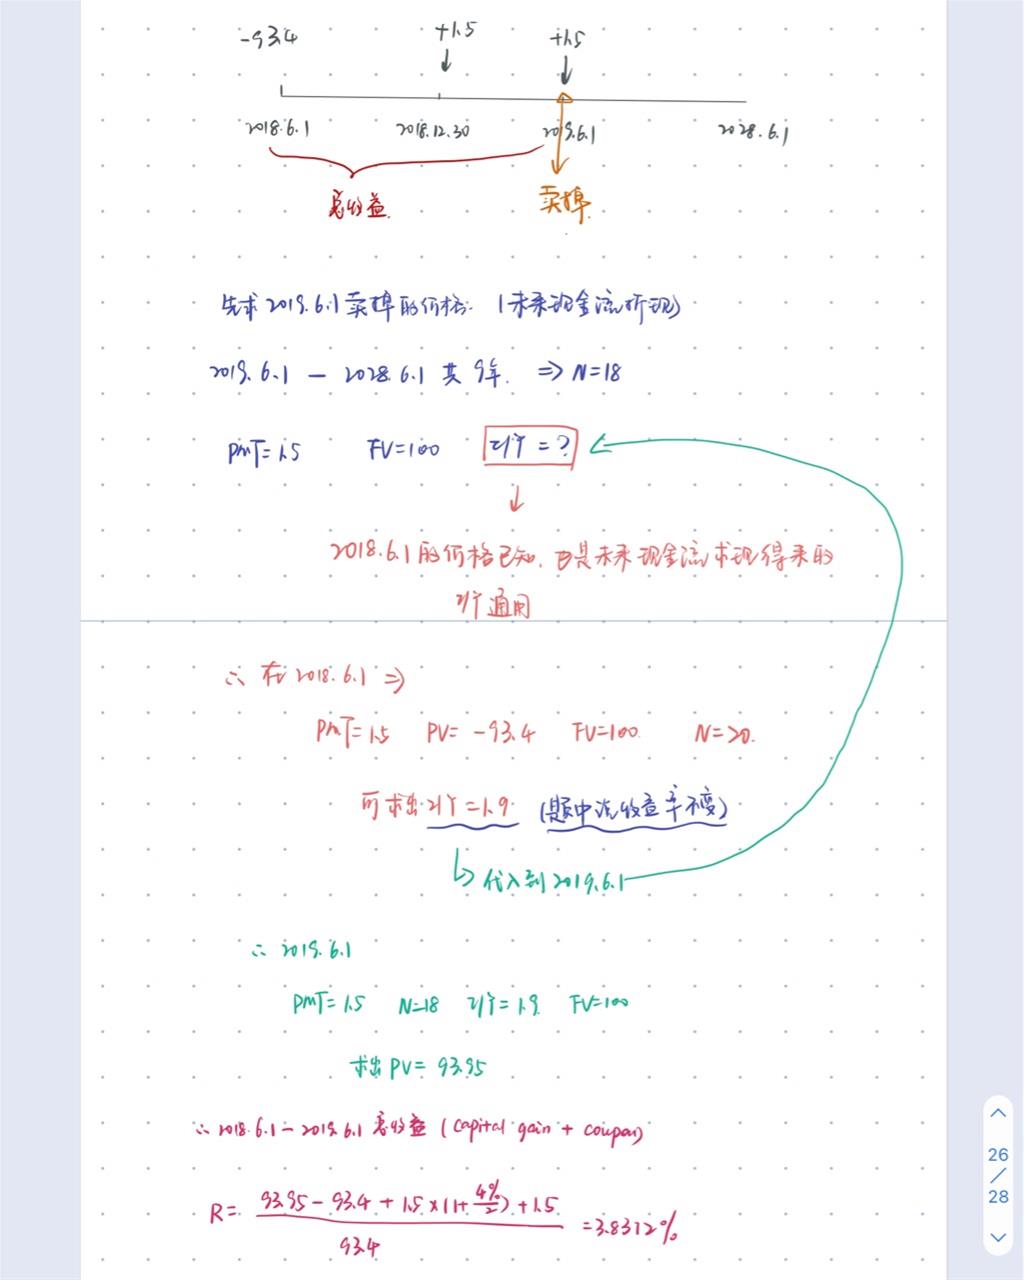 -93.4 +1.5 +1.5
2018.6.1 2018.12.30 2019.6.1 2028.6.1
总收益 卖掉
先求2019.6.1卖掉的价格. (未来现金流折现)
2019.6.1 — 2028.6.1 共9年. ⇒ N=18
PMT=1.5 FV=100 I/Y=?
2018.6.1的价格已知, 也是未来现金流求现得来的
I/Y通用
∴ 在2018.6.1 ⇒
PMT=1.5 PV= -93.4 FV=100. N=20.
可求出I/Y=1.9. (题中说收益率不变)
代入到2019.6.1
∴ 2019.6.1
PMT=1.5 N=18 I/Y=1.9. FV=100
求出PV= 93.95
∴ 2018.6.1 — 2019.6.1 总收益 (capital gain + coupon)
R= (93.95 - 93.4 + 1.5×(1+4%/2) + 1.5) / 93.4 = 3.8312%
26
/
28